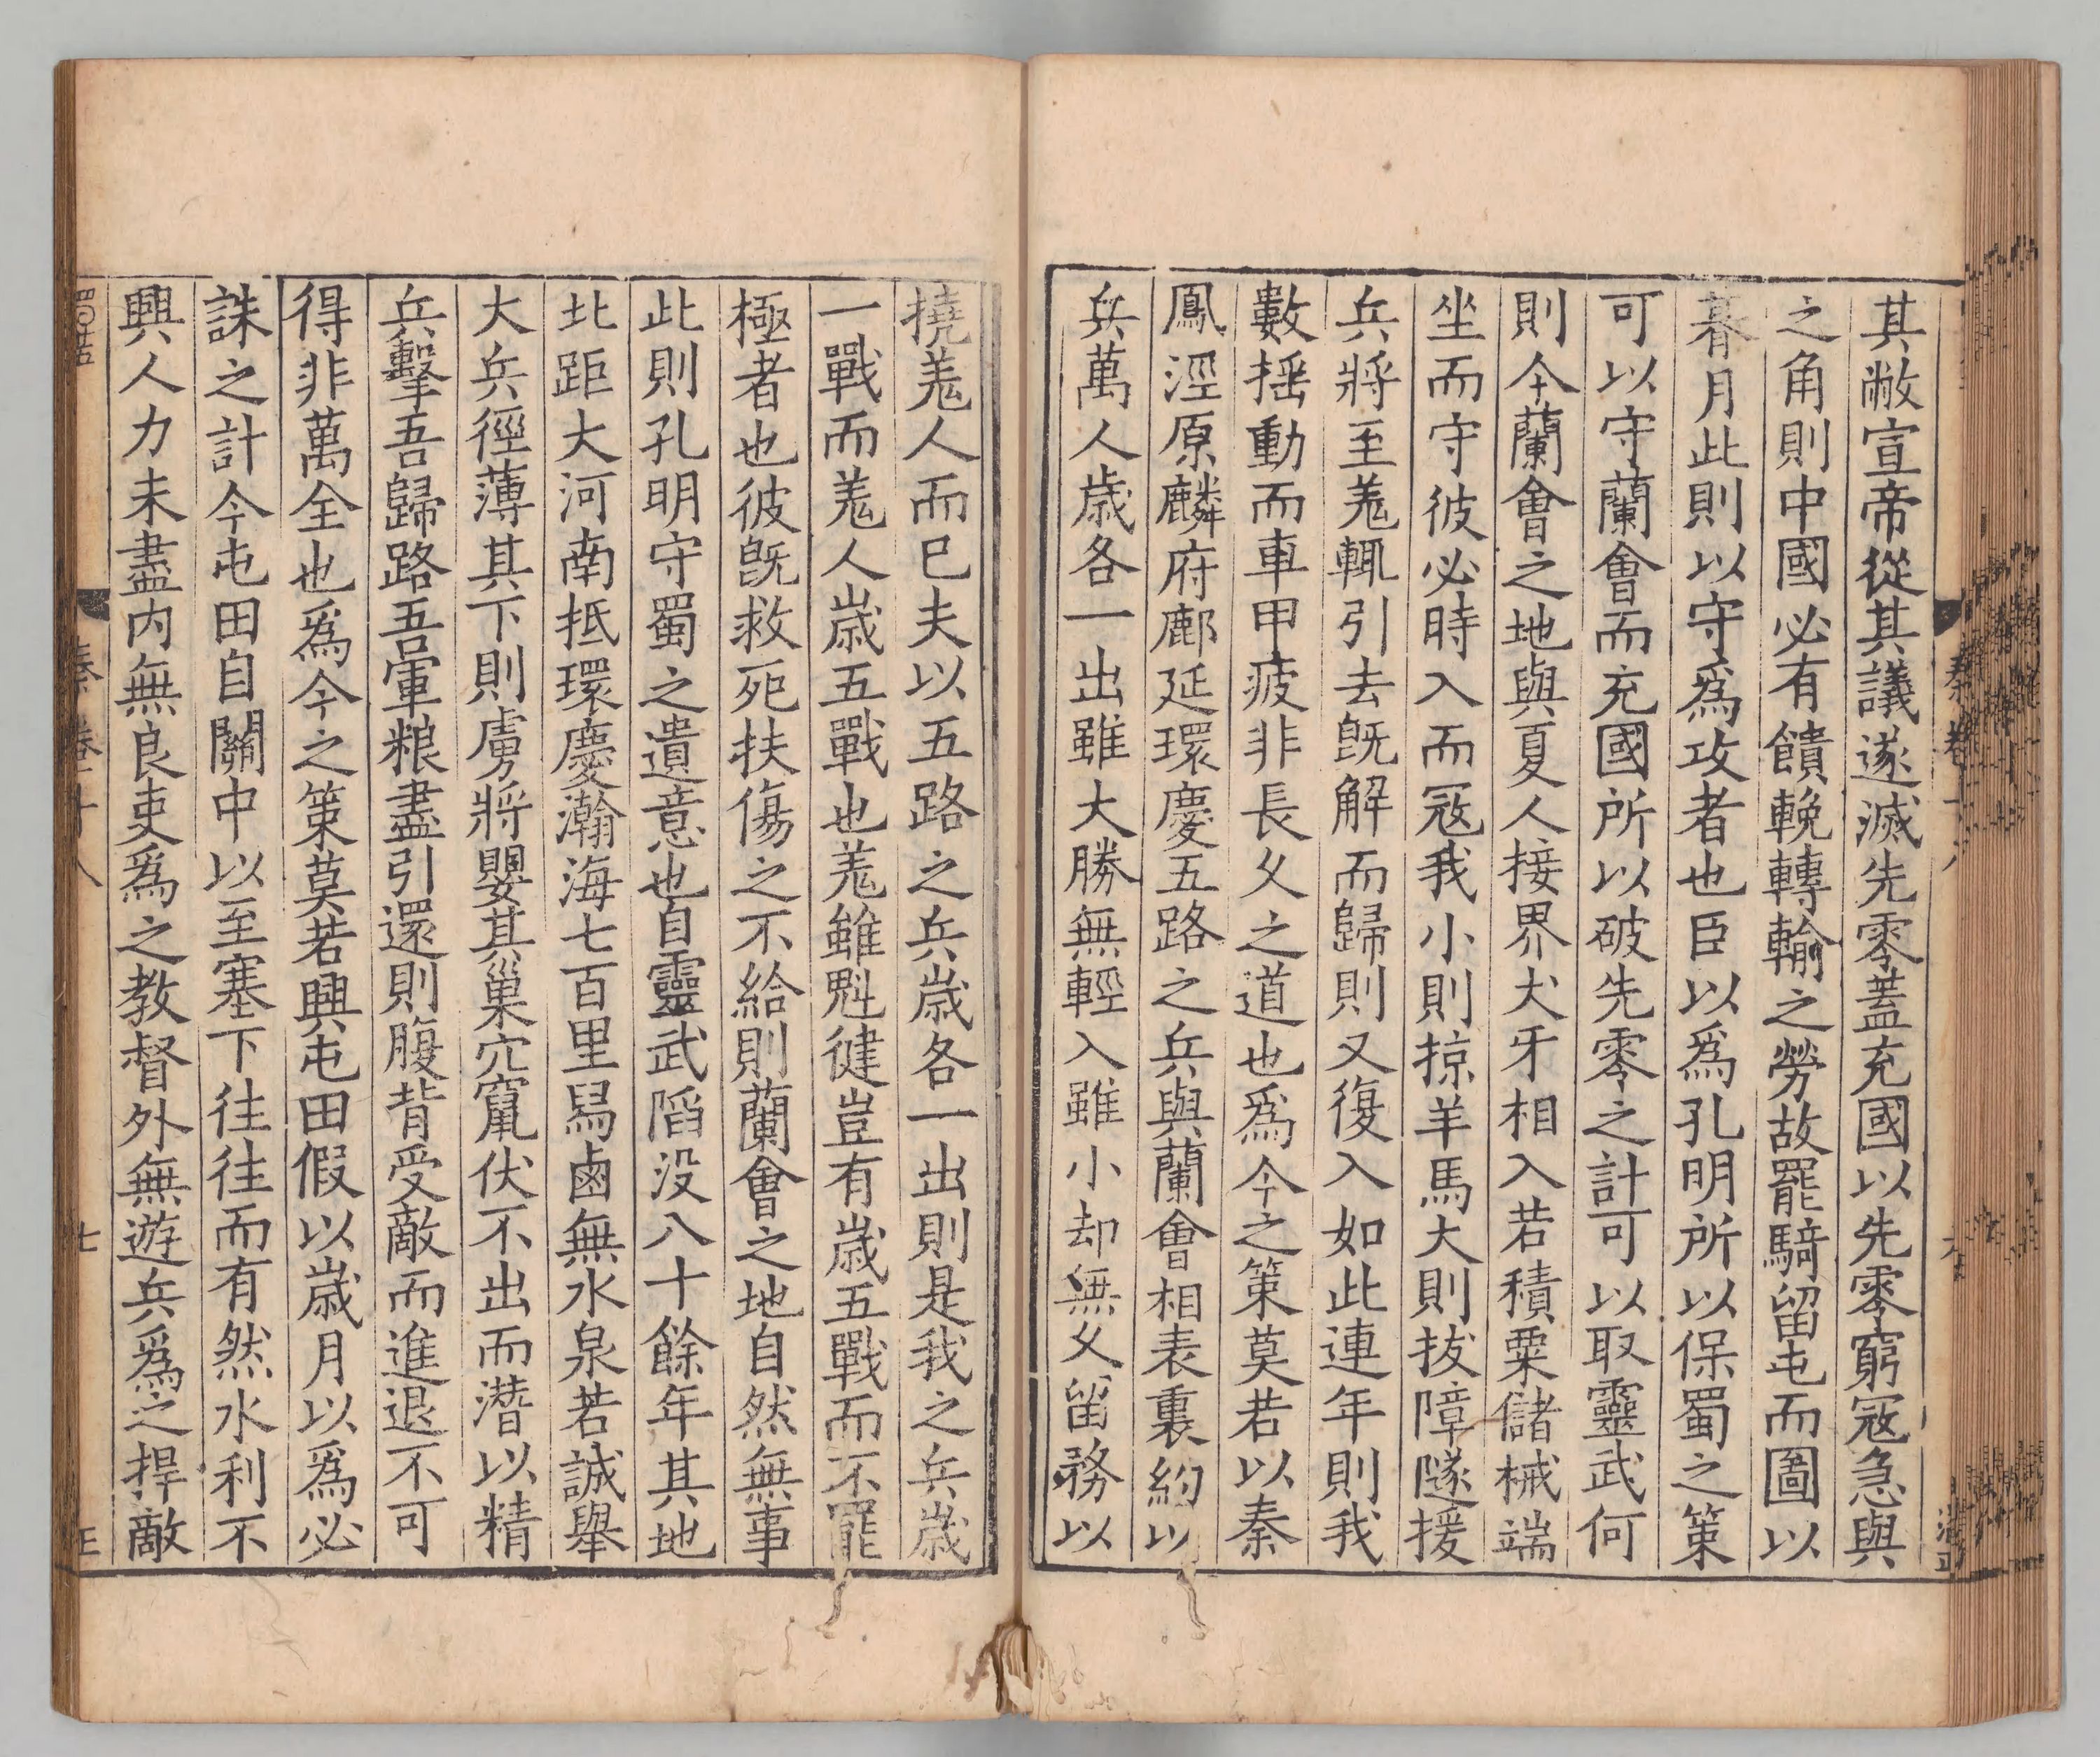 其敝宣帝從其議遂滅先零蓋充國以先零窮冦急與
之角則中國必有饋輓轉輸之勞故罷騎留屯而圖以
朞月此則以守爲攻者也臣以爲孔明所以保蜀之策
可以守蘭會而充國所以破先零之計可以取靈武何
則今蘭會之地與夏人接界犬牙相入若積粟儲械端
坐而守彼必時入而冦我小則掠羊馬大則拔障隧援
兵將至羗輒引去旣解而歸則又復入如此連年則我
數揺動而車甲疲非長久之道也爲今之策莫若以秦
鳳涇原麟府鄜延環慶五路之兵與蘭會相表裏約以
兵萬人歲各一出雖大勝無輕入雖小却無久留務以
撓羗人而已夫以五路之兵歲各一出則是我之兵歲
一戰而羗人歲五戰也羗雖魁健豈有歲五戰而不罷
極者也彼旣救死扶傷之不給則蘭會之地自然無事
此則孔明守蜀之遺意也自靈武䧟没八十餘年其地
北距大河南抵環慶瀚海七百里舄鹵無水泉若誠舉
大兵徑薄其下則虜將嬰其巢穴竄伏不出而潜以精
兵擊吾歸路吾軍粮盡引還則腹背受敵而進退不可
得非萬全也爲今之策莫若興屯田假以歲月以爲必
誅之計今屯田自關中以至塞下往往而有然水利不
興人力未盡内無良吏爲之教督外無遊兵爲之捍敵
秦 卷二十八
七